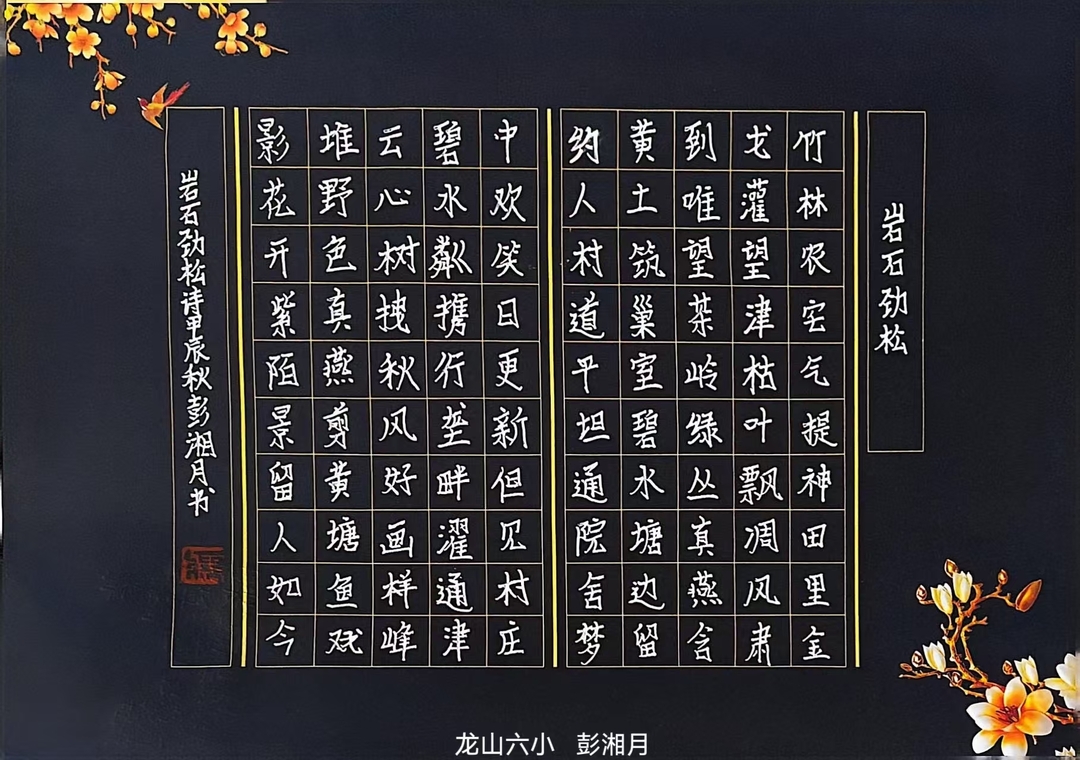 岩石劲松
竹林农宅气提神田里金
戈灌望津枯叶飘凋风肃
到唯望某岭绿丛真燕含
黄土筑巢室碧水塘边留
约人村道平坦通院舍梦
中欢笑日更新但见村庄
碧水粼携行垄畔濯通津
云心树拽秋风好画样峰
堆野色真燕剪黄塘鱼戏
影花开紫陌景留人如今
岩石劲松诗甲辰秋彭湘月书
龙山六小 彭湘月